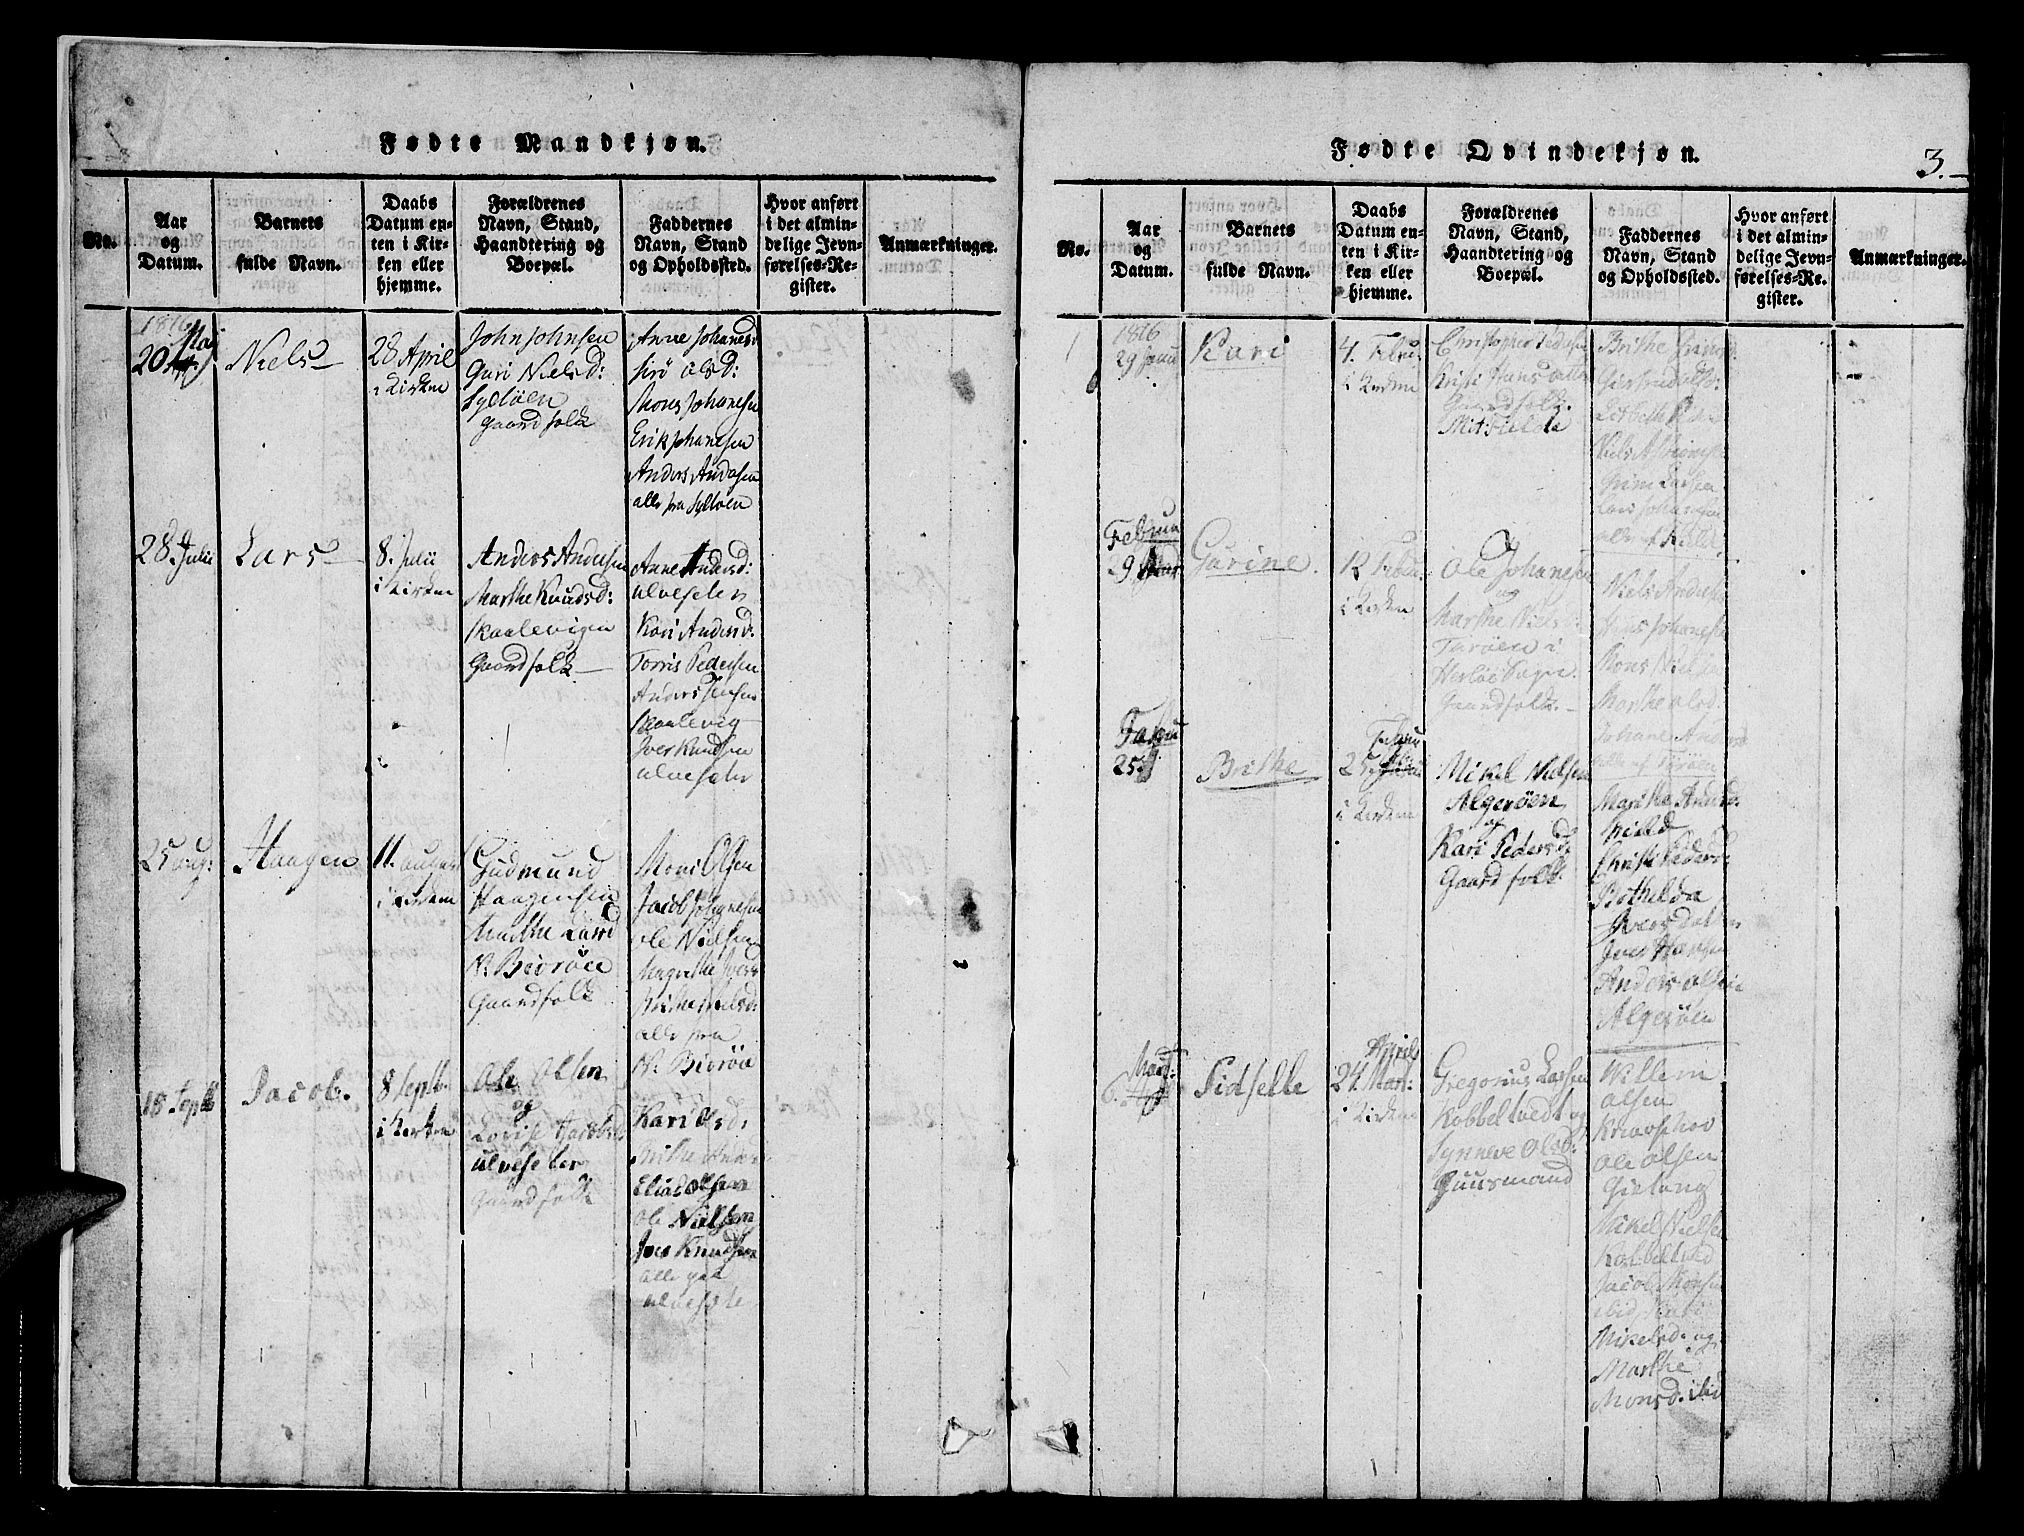 Fødte Mandkjøn.
No.
Aar
og
Datum.
Barnets
fulde Navn.
Daabs
Datum en-
ten i Kir-
ken eller
hjemme.
Forældrenes
Navn, Stand,
Haandtering og
Boepæl.
Faddernes
Navn, Stand
og Opholdssted.
Hvor anført
i det almin-
delige Jevn-
førelses-Re-
gister.
Anmærkninger.
1816
20
Niels
28 April
i Kirken
John Johnsen
Guri Nielsd:
Syltøen
Gaardfolk
Anne Johanesd
Siró Olsd:
Mons Johanesen
Erik Johanesen
Anders Andersen
alle fra Syltøen
28. Julii
Lars
8. Julii
i Kirken
Anders Andersen
Marthe Knudsd:
Skaalevigen
Gaardfolk
Anne Andersd:
Ulveseter
Kari Andersd:
Torris Pedersen
Anders Jensen
Skaalevig
Iver Knudsen
Ulvesetr
25 aug:
Haagen
11. august
i Kirken
Gudmund
Haagensen
Marthe Larsd
N. Biorøe
Gaardfolk
Mons Olsen
Jacob Johannesen
Ole Nielsen
Magrethe Ivers
Brithe Nielsd:
alle fra
N. Biorøe
18 Septb
Jacob.
8 Septbr
i Kirken
Ole Olsen
og
Lovise Jacobsd:
Ulveseter
Gaardfolk
Kari Olsd:
Brithe Anders
Elias Olsen
Ole Nielsen
Iver Knudsen
alle paa
Ulvesete
Fødte Qvindekjøn.
3.
No.
Aar
og
Datum.
Barnets
fulde Navn.
Daabs
Datum en-
ten i Kir-
ken eller
hjemme.
Forældrenes
Navn, Stand,
Haandtering og
Boepæl.
Faddernes
Navn, Stand
og Opholdssted.
Hvor anført
i det almin-
delige Jevn-
førelses-Re-
gister.
Anmærkninger.
1
1816
29 Janu
Kari
4. Febru
i Kirken
Christopher Pedersen
Kristi Hansdatter
Gaardfolk.
Brithe
Giertrud Olsd:
Lisbeth
Niels
Grim Larsen
Februa
9
Gurine.
12 Febr
i Kirken
Ole Johanesen
og
Marthe Nielsd:
Turøen i
Herløe Sogn.
Gaardfolk.
Niels Andersen
Johanesen
Mons Nielsen
Marthe Olsd
Johane Andersd
alle af Turøen
25
Brithe
Febru
25
i Kirken
Mikel Nielsen
Algerøen
og
Kari Pedersd:
Gaardfolk
Marithe
Christi Pedersd:
Bothilda
Iversdatter
Iver Hansen
Anders Olsen
Algerøen
Mart:
6.
Sidselle
April
24.
i Kirken
Gregorius Larsen
Kobbeltvedt og
Synneve Olsd:
Huusmand
Willem
Olsen
Ole Olsen
Mikel Nielsen
Kobbeltvd
Jacob Monsen
ibid, Kari
Mikelsd. og
Marthe
Monsd. ibid